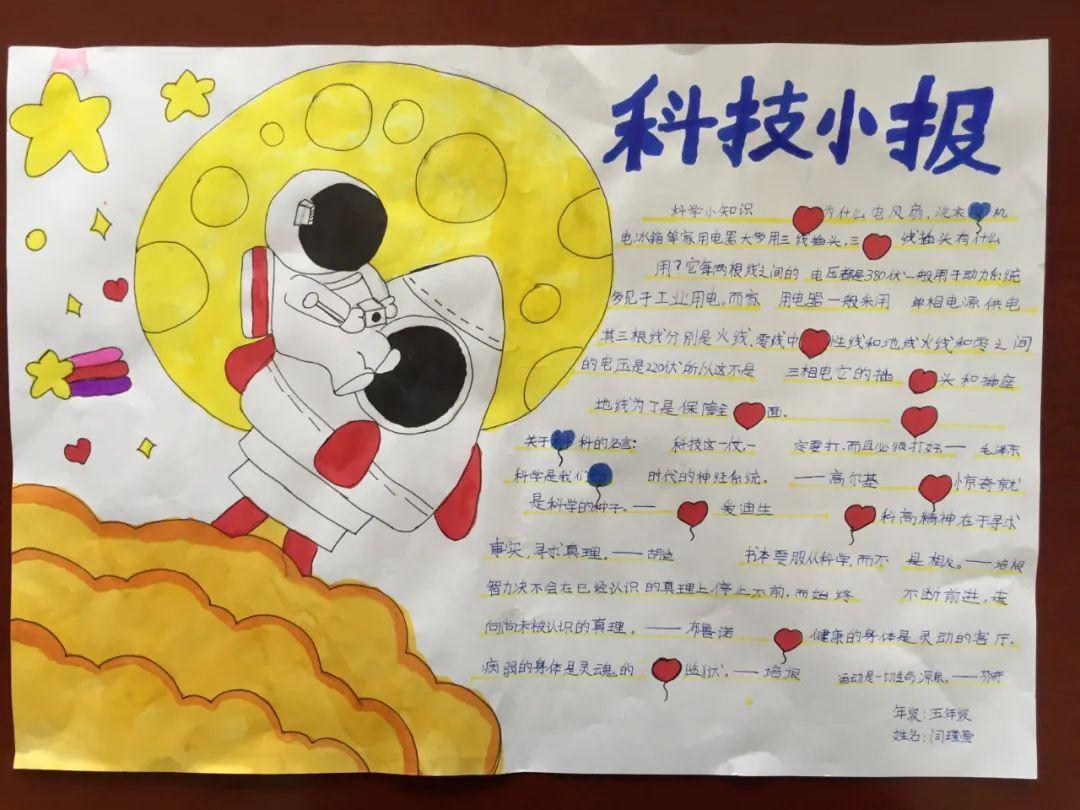 科技小报
科学小知识 为什么电风扇、洗衣机
电冰箱等家用电器大多用三线插头,三线插头有什么
用?它每两根线之间的 电压都是380伏一般用于动力系统
多见于工业用电。而家 用电器一般采用 单相电源供电
其三根线分别是火线、零线中性线和地线火线和零之间
的电压是220伏所以这不是 三相电它的插头和插座
地线为了是保障 面。
关于 科的名言: 科技这一仗,一 定要打,而且必须打好—— 毛泽东
科学是我们 时代的神经系统. ——高尔基 惊奇就
是科学的种子. —— 爱迪生 科高精神在于寻求
事实,寻求真理。——胡适 书本要服从科学,而不 是相反。——培根
智力决不会在已经认识的真理上停止不前,而始终 不断前进,走
向尚未被认识的真理。——布鲁诺 健康的身体是灵动的客厅.
病弱的身体是灵魂的 监狱. ——培根 运动是一切生命源泉.——芬奇
年级:五年级
姓名:闫瑾萱